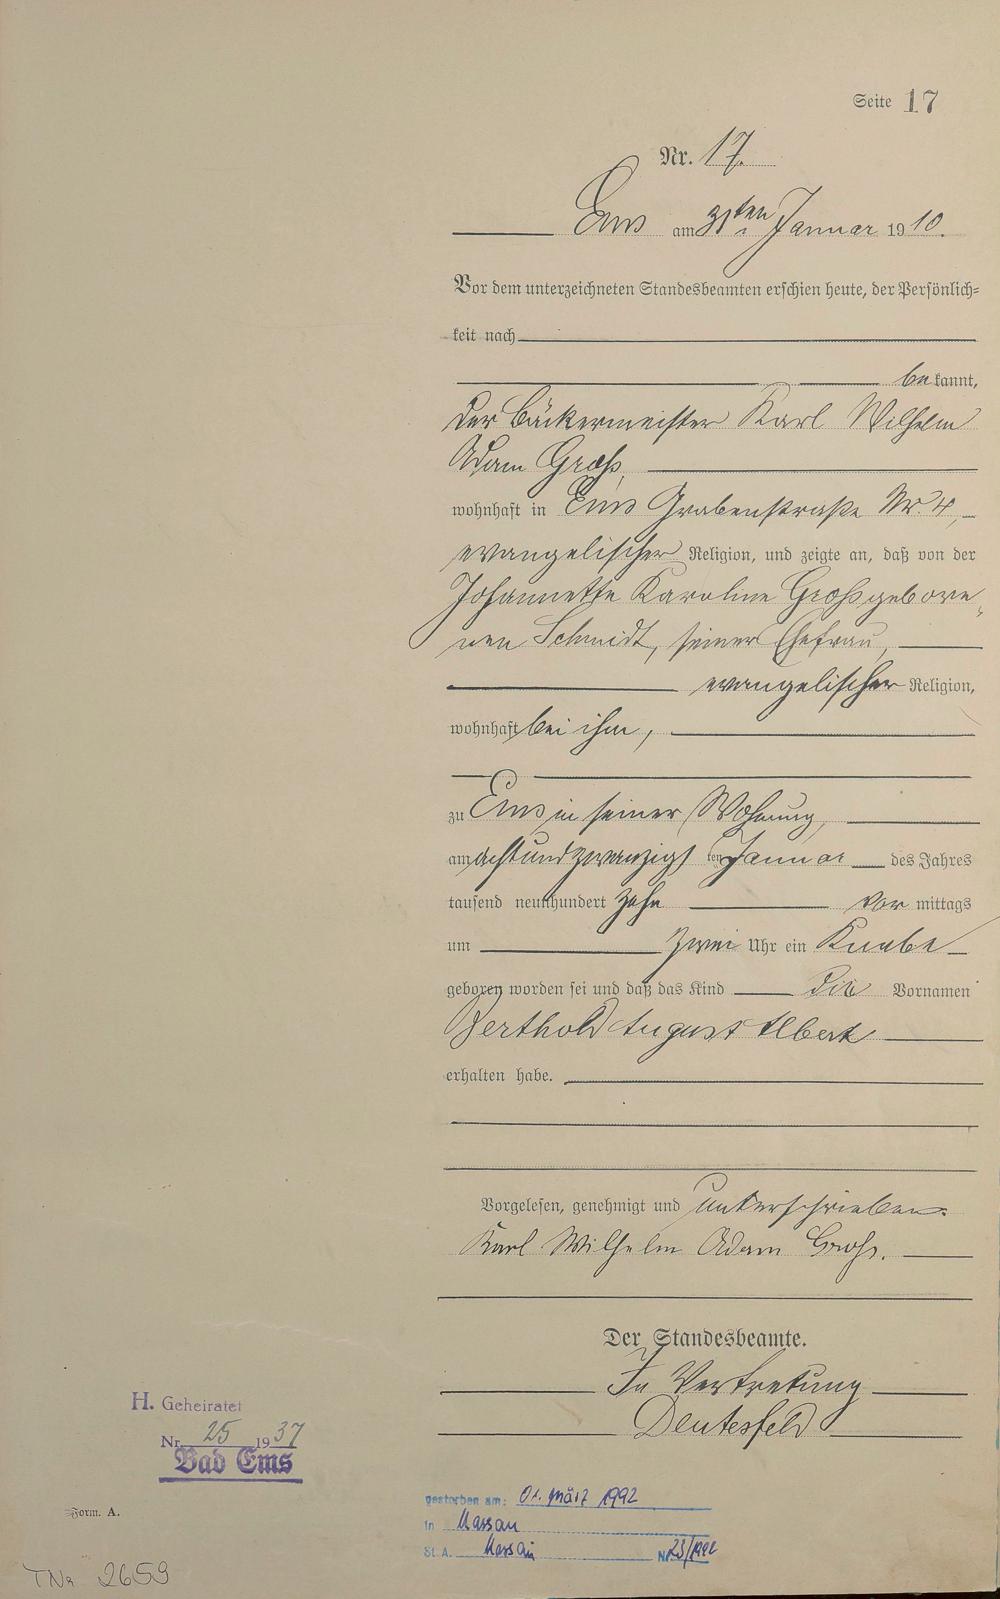 Seite 17
Nr. 17.
Ems am 31ten Januar 1910.
Vor dem unterzeichneten Standesbeamten erschien heute, der Persönlich=
keit nach
bekannt,
der Bäckermeister Karl Wilhelm
Adam Groß,
wohnhaft in Ems Grabenstraße Nr. 4,
evangelischer Religion, und zeigte an, daß von der
Johannette Karoline Groß gebore=
nen Schmidt, seiner Ehefrau,
evangelischer Religion,
wohnhaft bei ihm,
zu Ems in seiner Wohnung,
am achtundzwanzigsten Januar des Jahres
tausend neunhundert zehn vor mittags
um zwei Uhr ein Knabe
geboren worden sei und daß das Kind die Vornamen
Berthold August Albert
erhalten habe.
Vorgelesen, genehmigt und unterschrieben.
Karl Wilhelm Adam Groß.
Der Standesbeamte.
In Vertretung
Deutesfeld
H. Geheiratet
Nr. 25 1937
Bad Ems
gestorben am: 01. März 1992
in Nassau
St. A. Nassau Nr. 23/1992
Form. A.
TNr 2659